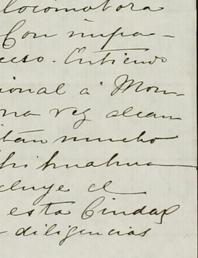 locomotora
Con impa-
ceso. Entiendo
ional á Mon-
na vez alcan
itán mucho
hihuahua
cluye el
esta Ciudad
diligencias